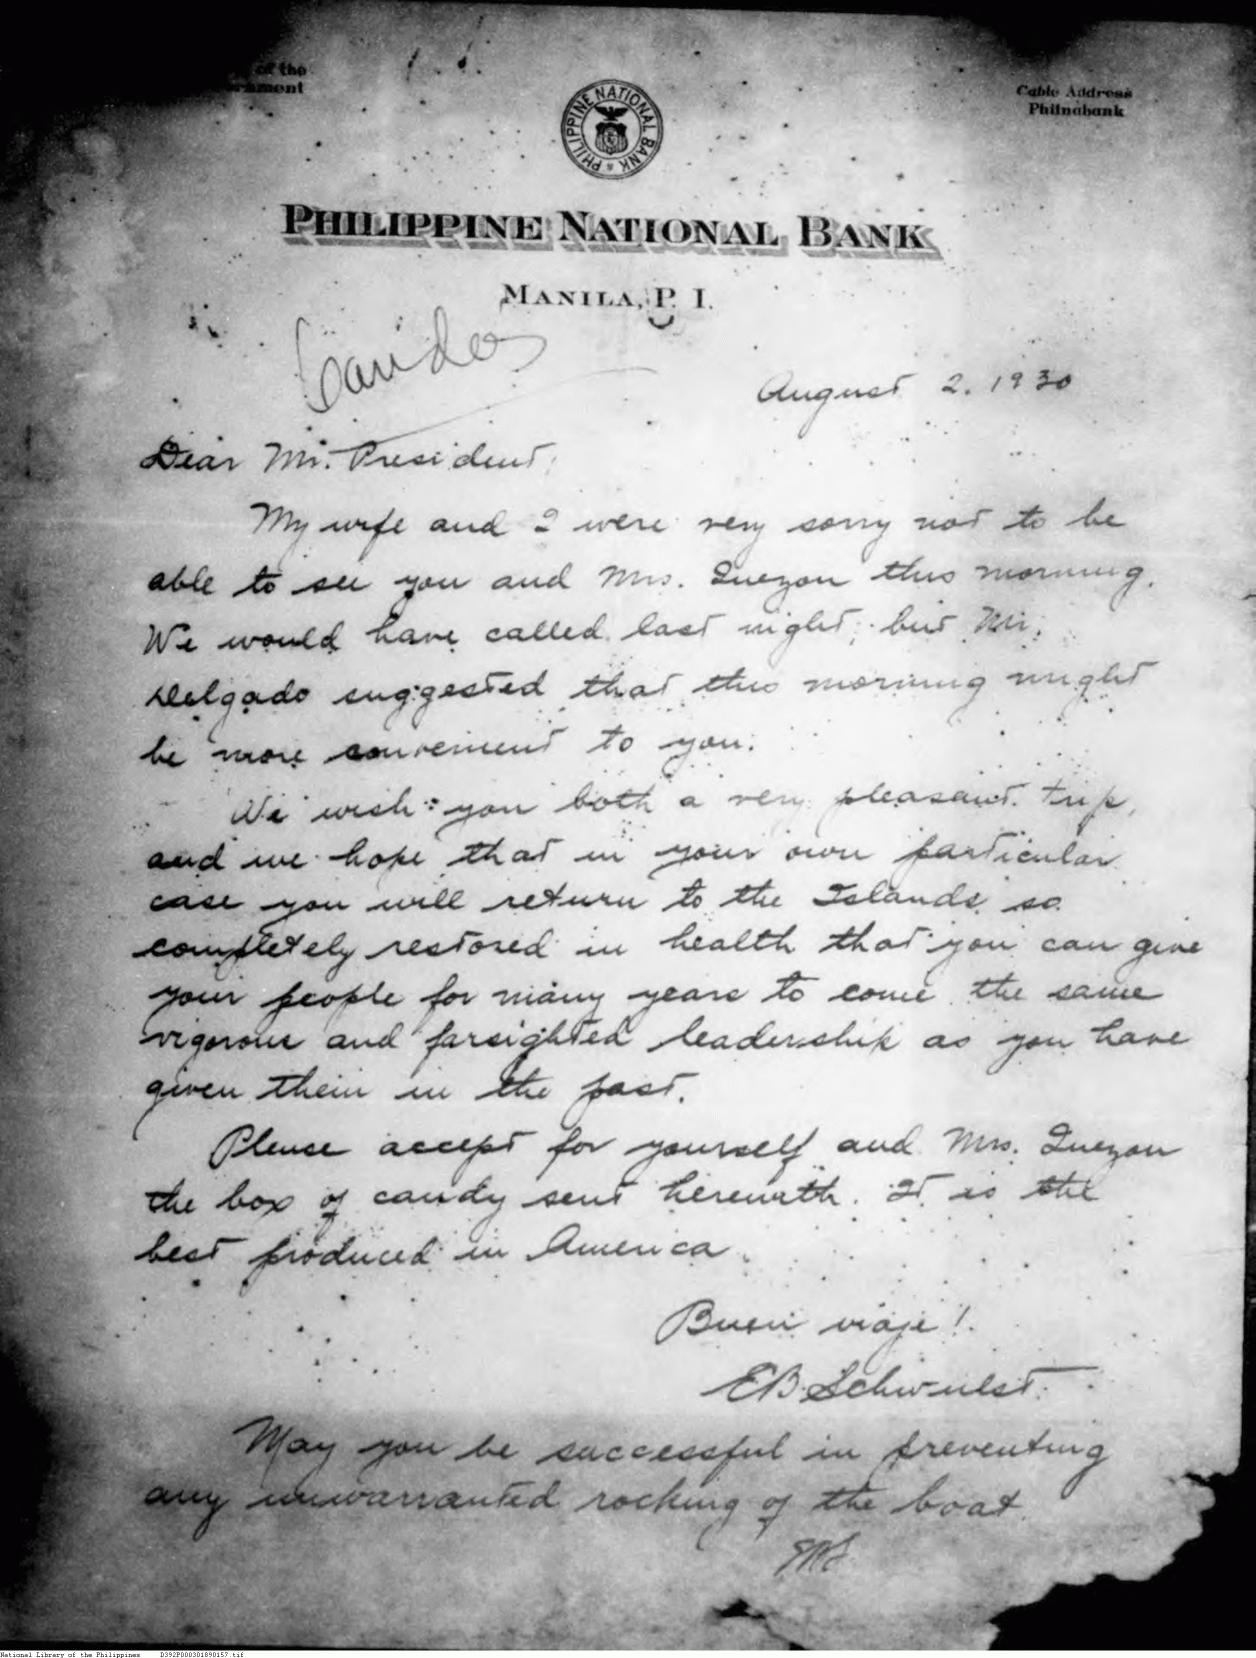 of the
Cable Address
Philnabank
PHILIPPINE NATIONAL BANK
PHILIPPINE NATIONAL BANK
MANILA, P. I.
August 2. 1930
Dear Mr. President,
My wife and I were very sorry not to be
able to see you and Mrs. Quezon this morning.
We would have called last night, but Mr.
Delgado suggested that this morning might
be more convenient to you.
We wish you both a very pleasant trip,
and we hope that in your own particular
case you will return to the Islands so
completely restored in health that you can give
your people for many years to come the same
vigorous and farsighted leadership as you have
given them in the past.
Please accept for yourself and Mrs. Quezon
the box of candy sent herewith. It is the
best produced in America.
Buen viaje!
EB. Schwulst.
May you be successful in preventing
any unwarranted rocking of the boat.
National Library of the Philippines D392P000301890157.tif